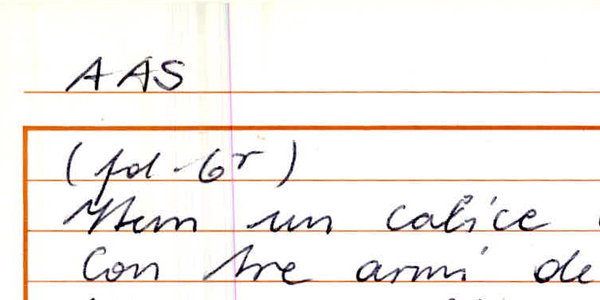 AAS
(fol-6r)
Item un calice
Con tre armi de